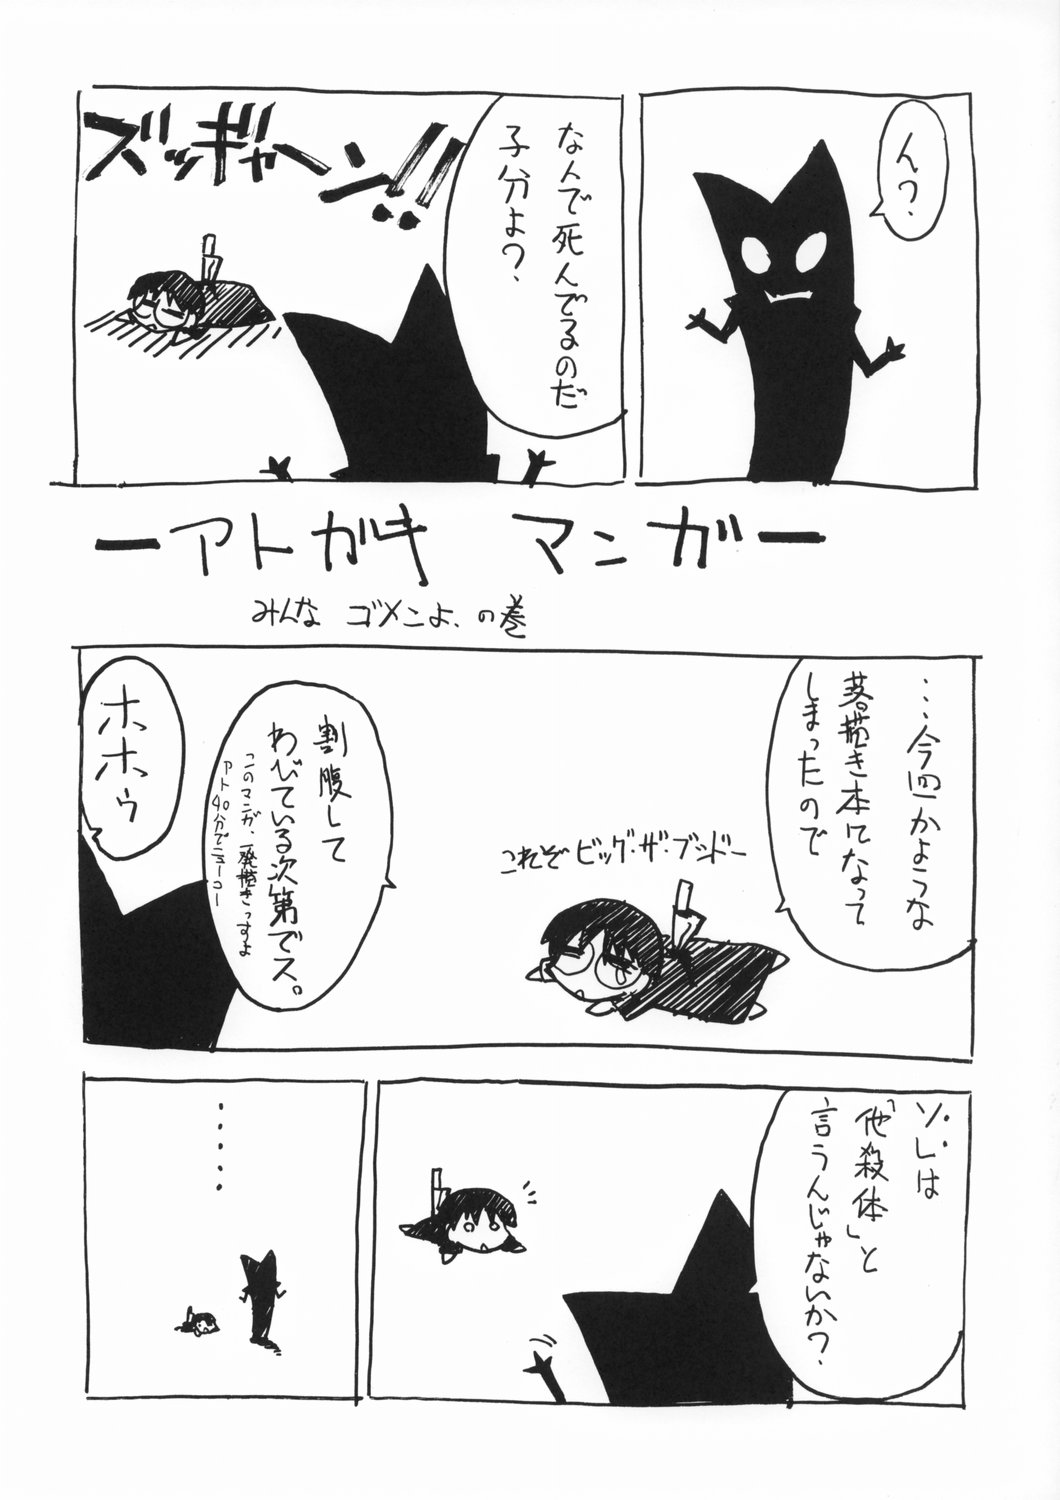 ん?
なんで死んでるのだ
子分よ?
ズッギャーン!!
ーアトガキ マンガー
みんな ゴメンよ、の巻
…今回かような
落描き本になって
しまったので
これぞビッグ・ザ・ブシドー
割腹して
わびている次第でス。
このマンガ、一発描きっすよ
アト40分でニューコー
ホホゥ
ソレは
「他殺体」と
言うんじゃないか?
・・・・・